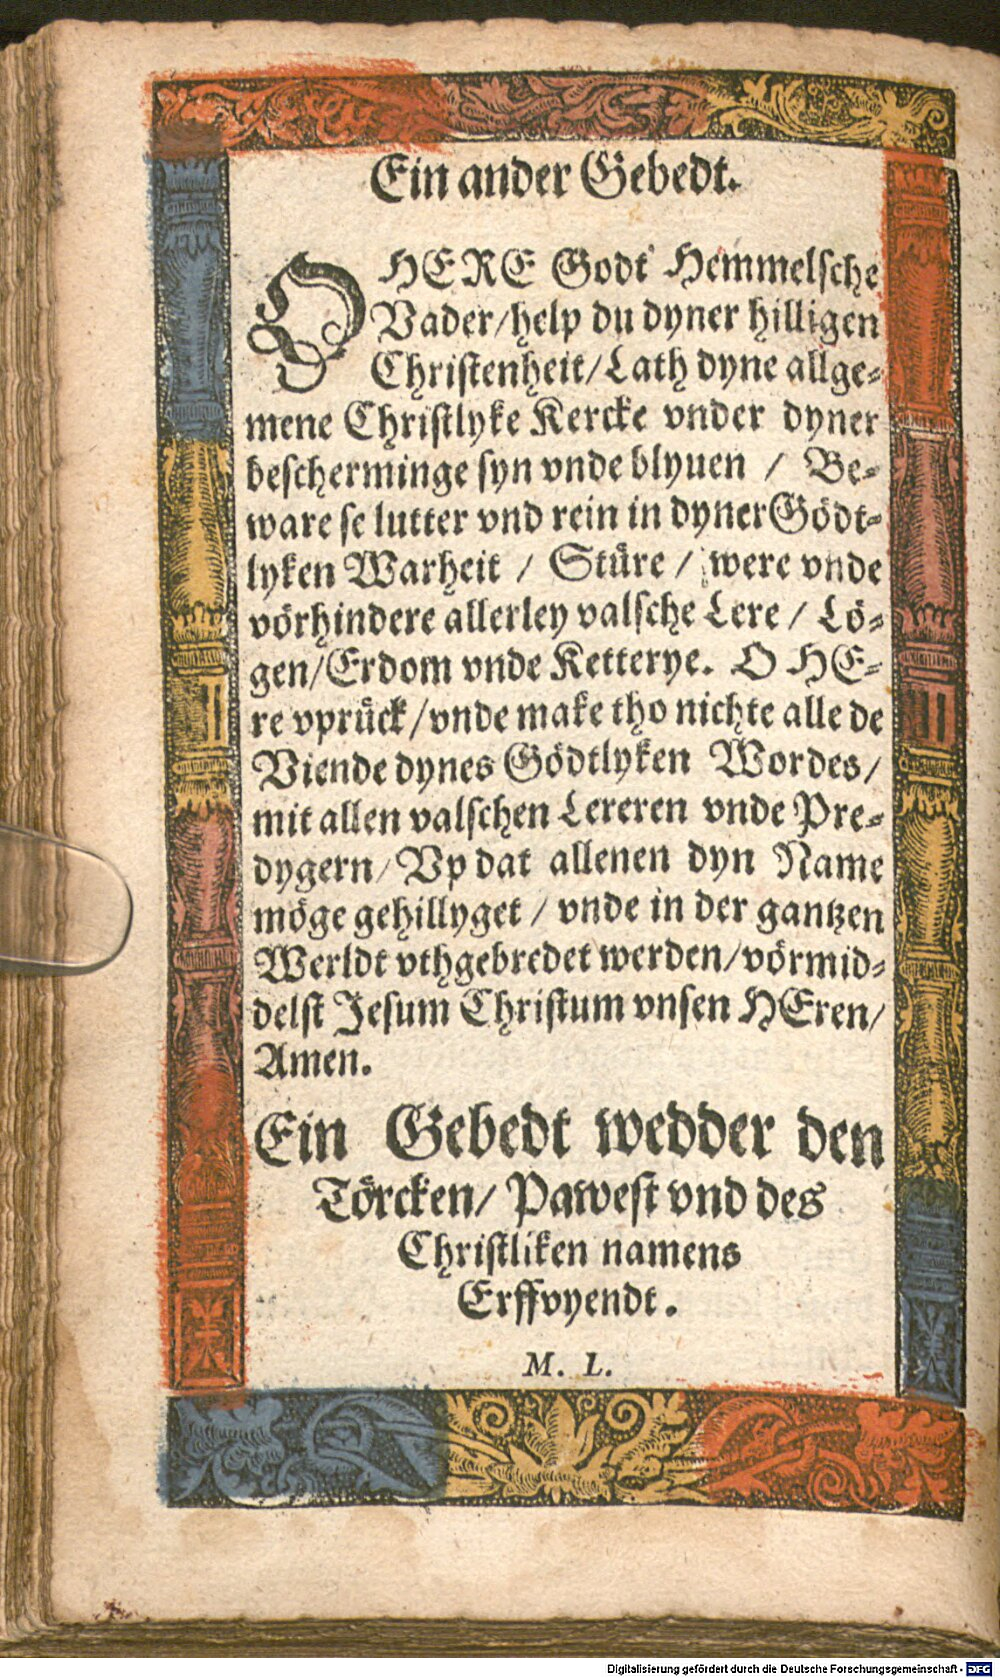 Ein ander Gebedt.
O HERE Godt Hemmelsche
Vader/help du dyner hilligen
Christenheit/Lath dyne allge-
mene Christlyke Kercke vnder dyner
bescherminge syn vnde blyuen / Be-
ware se lutter vnd rein in dyner Gödt-
lyken Warheit / Stüre / were vnde
vörhindere allerley valsche Lere / Lö-
gen/Erdom vnde Ketterye. O HE-
re vprück/vnde make tho nichte alle de
Viende dynes Gödtlyken Wordes/
mit allen valschen Lereren vnde Pre-
dygern/Vp dat allenen dyn Name
möge gehillyget / vnde in der gantzen
Werldt vthgebredet werden/vörmid-
delst Jesum Christum vnsen HEren/
Amen.
Ein Gebedt wedder den
Törcken/ Pawest vnd des
Christliken namens
Erffvyendt.
M. L.
Digitalisierung gefördert durch die Deutsche Forschungsgemeinschaft - DFG